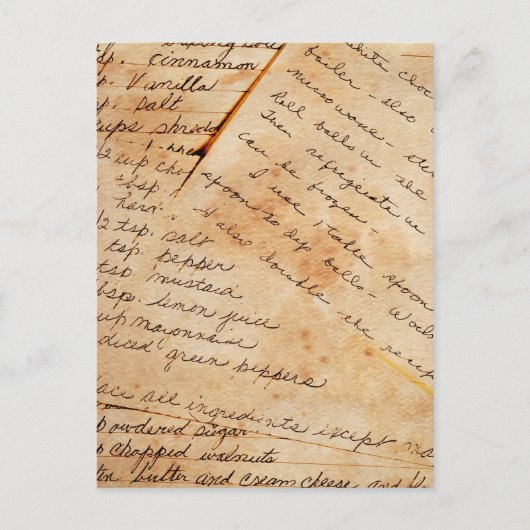 baking soda
sp. cinnamon
sp. Vanilla
p. salt
cups shredd
1/2 cup cho
tbsp.
1/2 tsp. salt
tsp. pepper
tsp. mustard
bsp. lemon juice
up mayonnaise
diced green peppers
lace all ingredients except ma
powdered sugar
p chopped walnuts
butter and cream cheese and
white choc
boiler - also
microwave -
Roll balls in the
Then refrigerate in
can be frozen -
I use 1 table spoon
spoon to dip balls - Works
I also double the recip